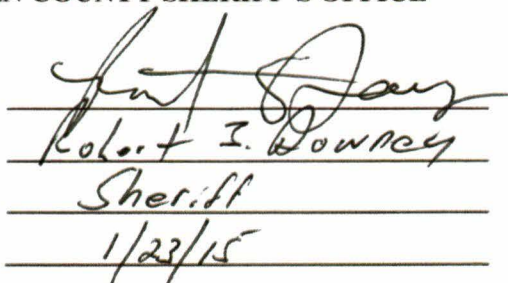 COUNTY SHERIFF'S OFFICE
Robert I. Downey
Sheriff
1/23/15